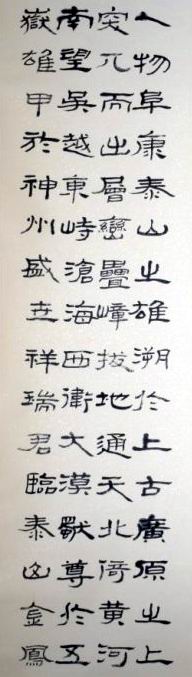 人物阜康泰山之雄溯於上古廣原之上
突兀而出層巒疊嶂拔地通天北倚黃河
南望吳越東峙滄海西衛大漠獸尊於五
嶽雄甲於神州盛世祥瑞君臨泰山金鳳